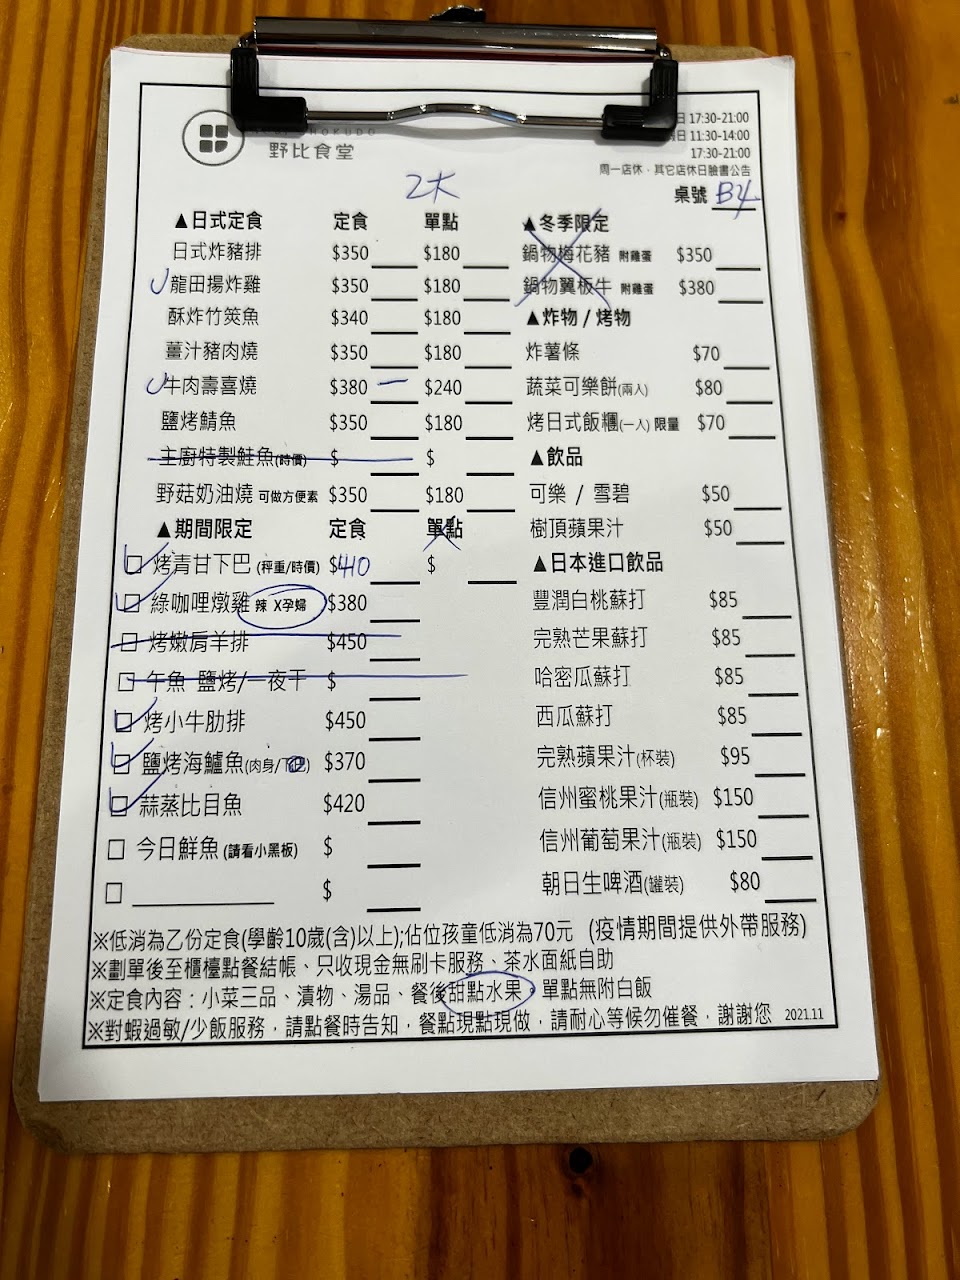 野比食堂
日 17:30-21:00
日 11:30-14:00
17:30-21:00
周一店休、其它店休日臉書公告
2大
桌號 B4
▲日式定食 定食 單點
日式炸豬排 $350 $180
龍田揚炸雞 $350 $180
酥炸竹筴魚 $340 $180
薑汁豬肉燒 $350 $180
牛肉壽喜燒 $380 $240
鹽烤鯖魚 $350 $180
主廚特製鮭魚(時價) $ $
野菇奶油燒 可做方便素 $350 $180
▲期間限定 定食 單點
烤青甘下巴 (秤重/時價) $410 $
綠咖哩燉雞 辣 X孕婦 $380
烤嫩肩羊排 $450
午魚 鹽烤/一夜干 $
烤小牛肋排 $450
鹽烤海鱸魚(肉身/下巴) $370
蒜蒸比目魚 $420
今日鮮魚 (請看小黑板) $
$
▲冬季限定
鍋物梅花豬 附雞蛋 $350
鍋物翼板牛 附雞蛋 $380
▲炸物 / 烤物
炸薯條 $70
蔬菜可樂餅(兩入) $80
烤日式飯糰(一入) 限量 $70
▲飲品
可樂 / 雪碧 $50
樹頂蘋果汁 $50
▲日本進口飲品
豐潤白桃蘇打 $85
完熟芒果蘇打 $85
哈密瓜蘇打 $85
西瓜蘇打 $85
完熟蘋果汁(杯裝) $95
信州蜜桃果汁(瓶裝) $150
信州葡萄果汁(瓶裝) $150
朝日生啤酒(罐裝) $80
※低消為乙份定食(學齡10歲(含)以上);佔位孩童低消為70元 (疫情期間提供外帶服務)
※劃單後至櫃檯點餐結帳、只收現金無刷卡服務、茶水面紙自助
※定食內容：小菜三品、漬物、湯品、餐後甜點水果。單點無附白飯
※對蝦過敏/少飯服務，請點餐時告知，餐點現點現做，請耐心等候勿催餐，謝謝您 2021.11